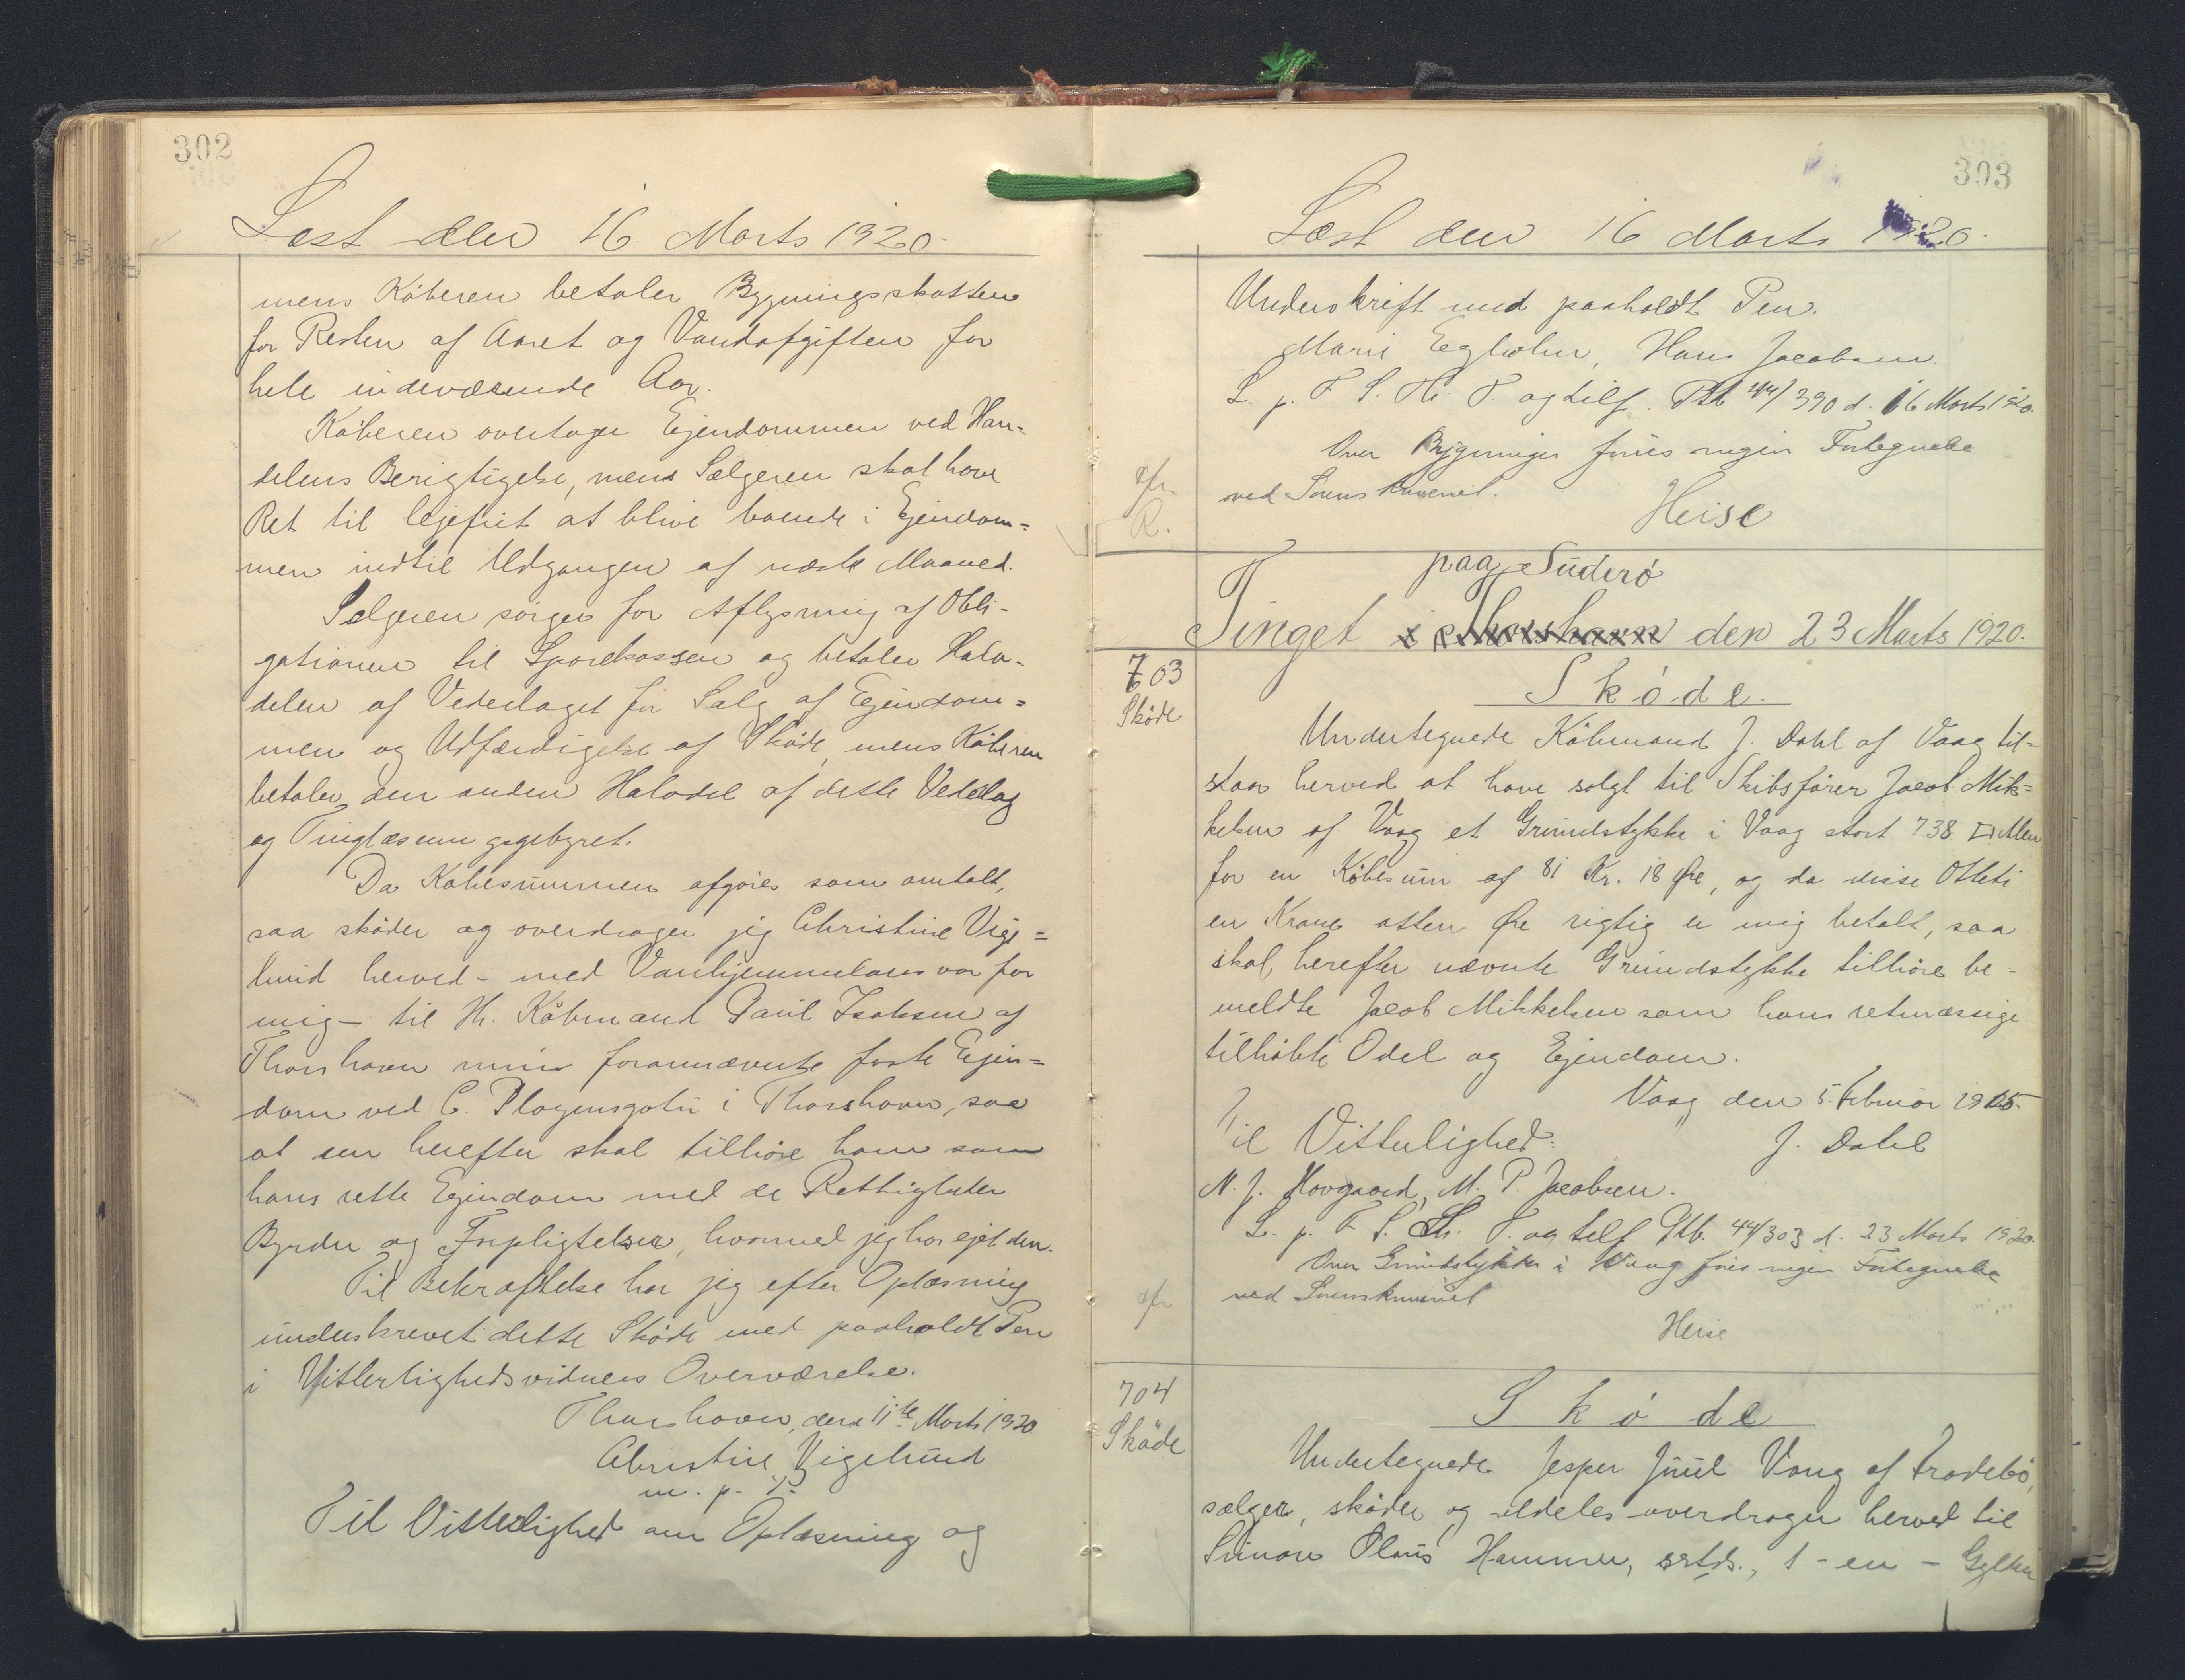 302
Læst den 16 Marts 1920.
mens Köberen betaler Bygningsskatten
for Resten af Aaret og Vandafgiften for
hele indeværende Aar.
Köberen overtager Ejendommen ved Han-
delens Berigtigelse, mens Sælgeren skal have
Ret til lejefrit at blive boende i Ejendom-
men indtil Udgangen af næste Maaned.
Sælgeren sörger for Aflysning af Obli-
gationen til Sparekassen og betaler Halv-
delen af Vederlaget for Salg af Ejendom-
men og Udfærdigelse af Sköde, mens Köberen
betaler den anden Halvdel af dette Vederlag
og Tinglæsningsgebyret.
Da Köbesummen afgöres som omtalt,
saa sköder og overdrager jeg Christine Vige-
lund herved - med Vanhjemmelansvar for
mig - til Hr. Köbmand Paul Isaksen af
Thorshavn min forannævnte faste Ejen-
dom ved C. Plöyensgøta i Thorshavn, saa
at den herefter skal tilhöre ham som
hans rette Ejendom med de Rettigheder
Byrder og Forpligtelser, hvormed jeg har ejet den.
Til Bekræftelse har jeg efter Oplæsning
underskrevet dette Sköde med paaholdt Pen
i Vitterlighedsvidners Overværelse.
Thorshavn, den 11te Marts 1920
Christine Vigelund
m. p. P.
Til Vitterlighed om Oplæsning og
303
Læst den 16 Marts 1920.
Underskrift med paaholdt Pen.
Marie Egholm, Hans Jacobsen.
L. p. F. S. Th. T. og tilf. Ptb 44/390 d. 16 Marts 1920.
Over Bygninger föres ingen Fortegnelse
cfr.
ved Sorenskriveriet.
R.
Heise
paa Süderö
Tinget i Thorshavn den 23 Marts 1920.
703
Sköde
Sköde.
Undertegnede Köbmand J. Dahl af Vaag til-
staar herved at have solgt til Skibsförer Jacob Mik-
kelsen af Vaag et Grundstykke i Vaag stort 738 □ Alen
for en Köbesum af 81 Kr. 18 Øre, og da disse Otteti
en Krone atten Øre rigtig er mig betalt, saa
skal herefter nævnte Grundstykke tilhöre be-
meldte Jacob Mikkelsen som hans retmæssige
tilköbte Odel og Ejendom.
Vaag den 5. Februar 1915.
Til Vitterlighed:
J. Dahl
N. J. Hovgaard, M. P. Jacobsen.
L. p. F. S. Th. T. og tilf Ptb. 44/303 d. 23 Marts 1920.
Over Grundstykker i Vaag föres ingen Fortegnelse
cfr
ved Sorenskriveriet
Heise
704
Sköde
Sköde
Undertegnede Jesper Juul Vang af Frodebö,
sælger, sköder og aldeles overdrager herved til
Simon Olaus Hammer, smstds., 1 - en - Gylden